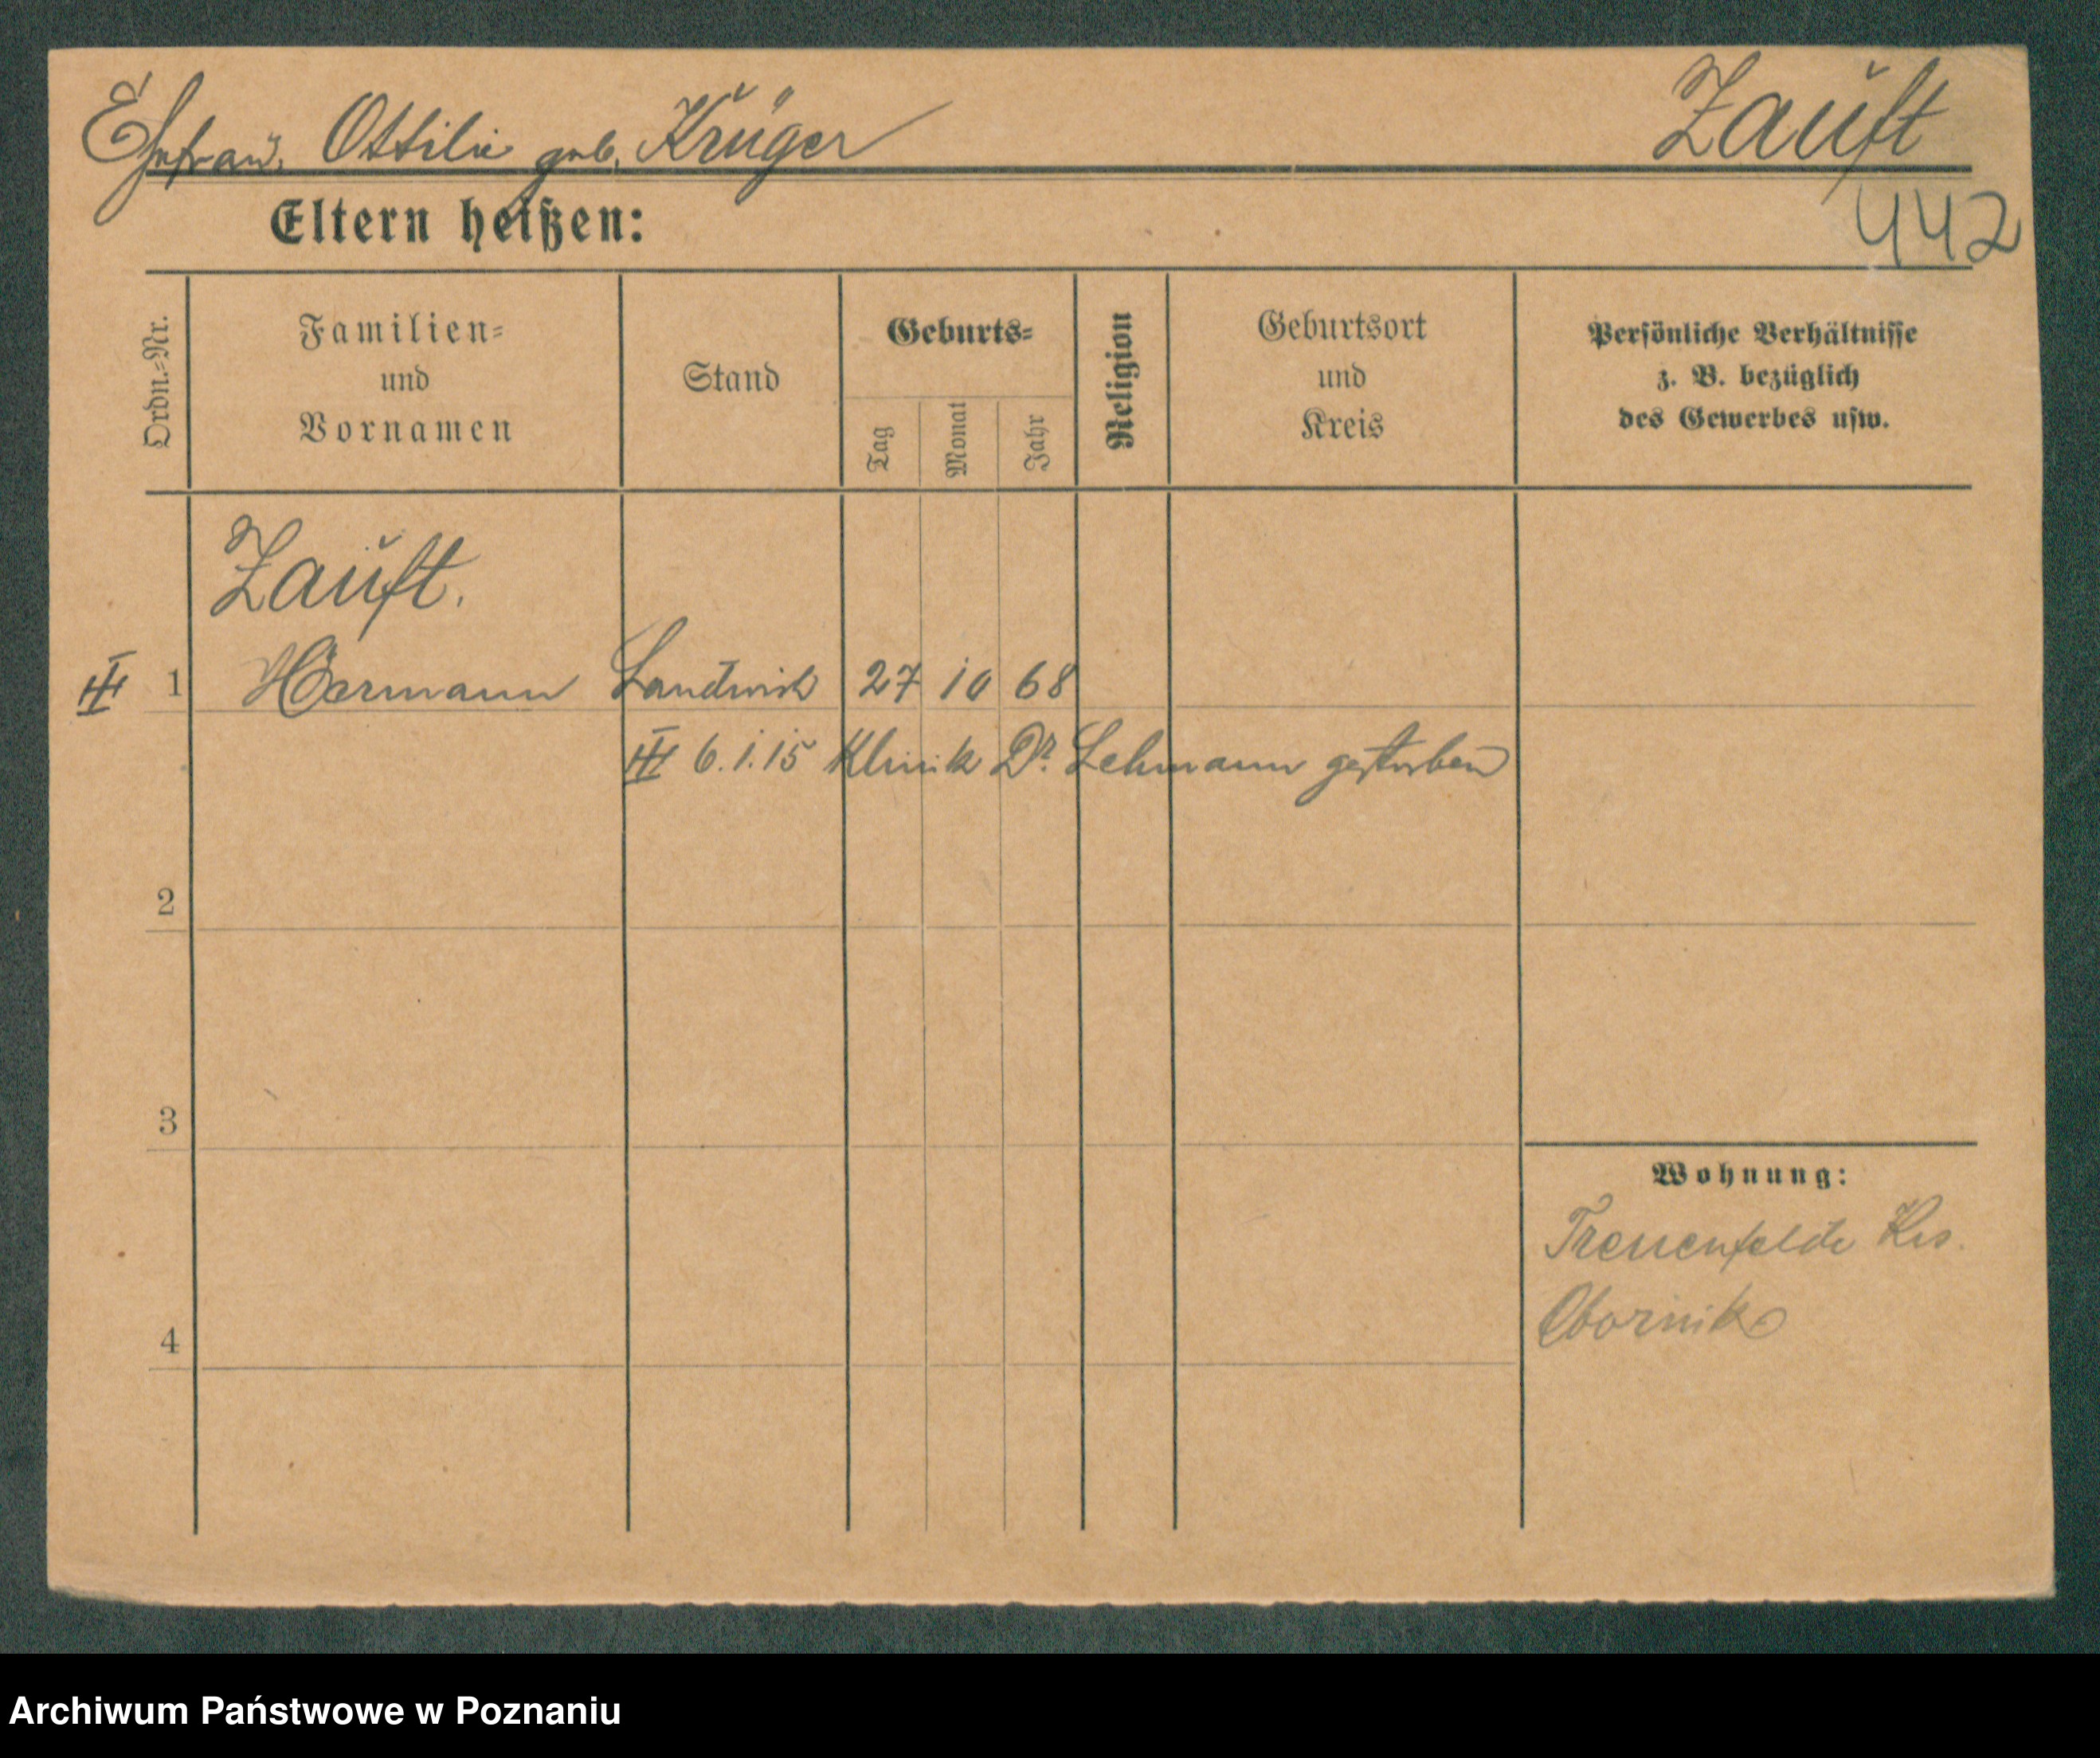 Ehefrau, Ottilie geb. Krüger
Zauft
442
Eltern heißen:
Ordn.-Nr.
Familien-
und
Vornamen
Stand
Geburts-
Tag
Monat
Jahr
Religion
Geburtsort
und
Kreis
Persönliche Verhältnisse
z. B. bezüglich
des Gewerbes usw.
Zauft.
1 Hermann Landwirt 27 10 68
6.1.15 Klinik Dr. Lehmann gestorben
2
3
4
Wohnung:
Treuenfelde Krs.
Obornik
Archiwum Państwowe w Poznaniu